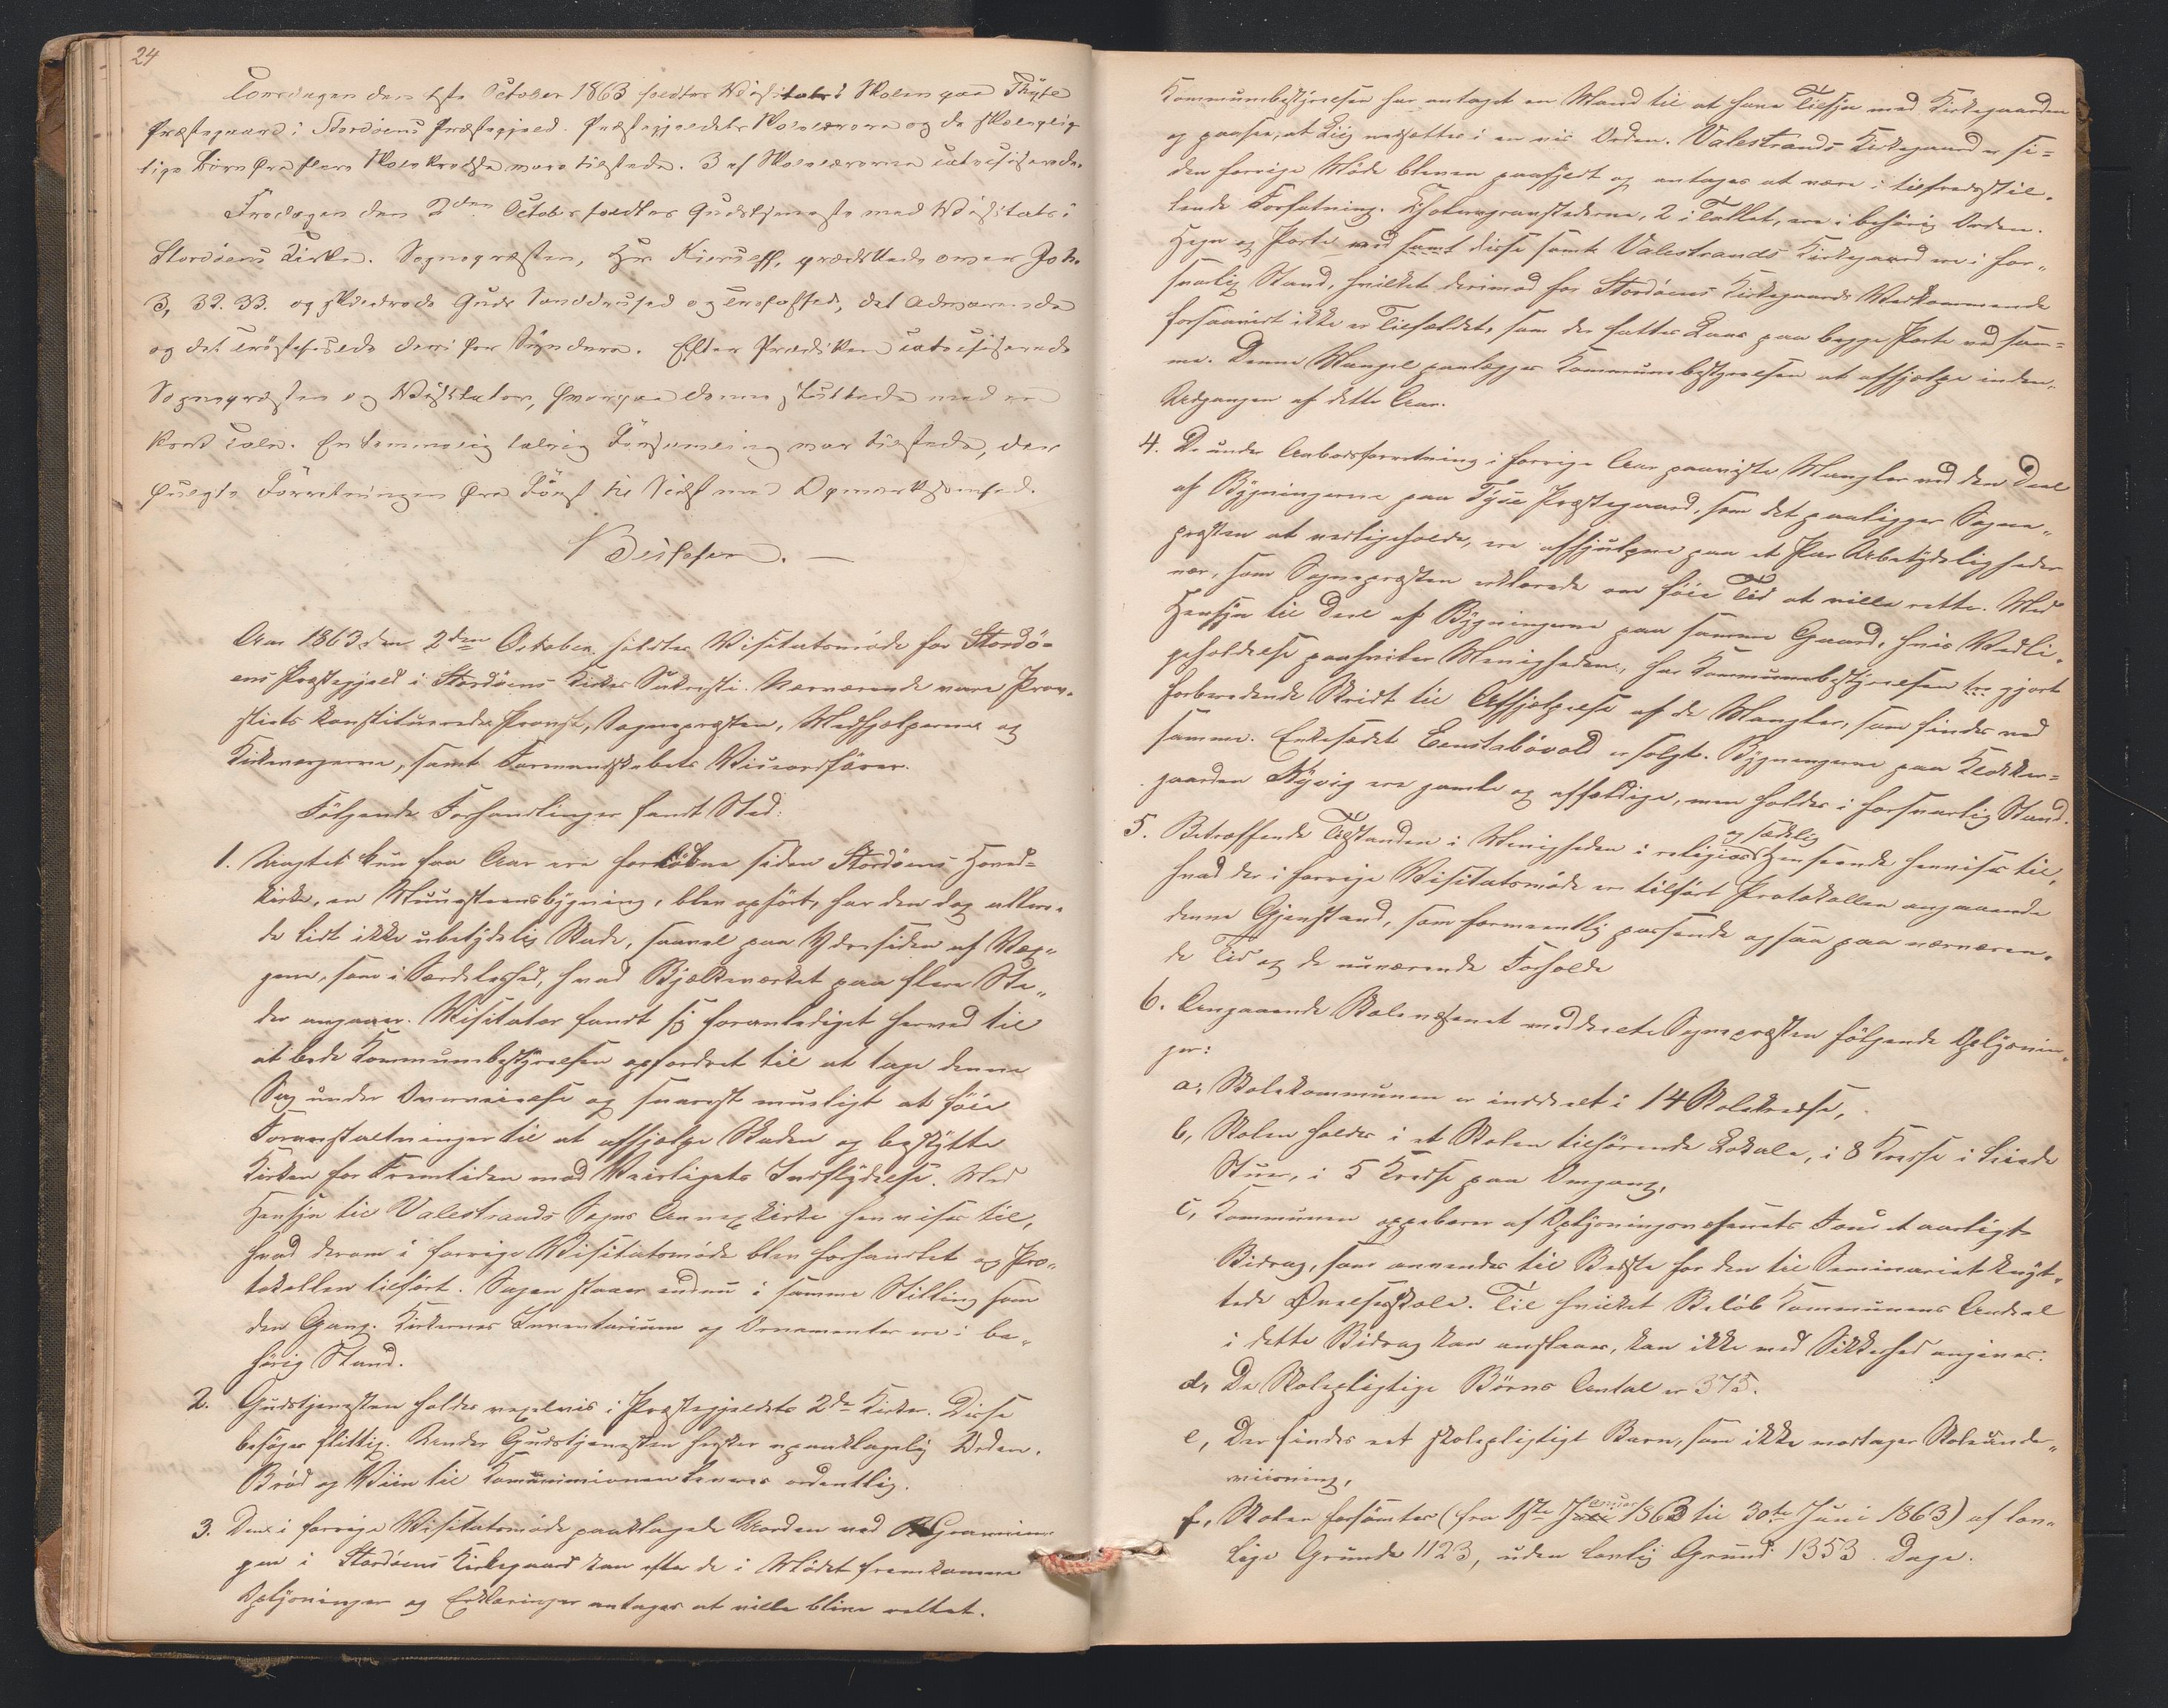 24
Torsdagen den 1ste October 1863 holdtes Visitats i Skolen paa Thyse
Præstegaard i Stordöens Præstegjeld. Præstegjeldets Skolelærere og de skoleplig
tige Börn fra flere Skolekredse vare tilstede. 3 af Skolelærerne catechiserede.
Fredagen den 2den October holdtes Gudstjeneste med Visitats i
Stordöens Kirke. Sognepræsten, Hr. Kierulff, prædikede over Joh.
3, 32. 33. og skildrede Guds Sanddruhed og Trofasthed, det advarende
og det tröstefulde deri for Syndere. Efter Prædiken catechiserede
Sognepræsten og Visitator, hvorpaa denne sluttede med en
kort Tale. En temmelig talrig Forsamling var tilstede, der
fulgte Forretningen fra Först til Sidst med Opmærksomhed.
Aar 1863 den 2den October holdtes Visitatsmöde for Stordö-
ens Præstegjeld i Stordöens Kirkes Sakristi. Nærværende vare Prov-
stiets konstituerede Provst, Sognepræsten, Medhjælperne og
Kirkeværgerne, samt Formandskabets Viceordförer.
Fölgende Forhandlinger fandt Sted:
1. Uagtet kun faa Aar ere forlöbne siden Stordöens Hoved-
kirke, en Muursteensbygning, blev opfört, har den dog allere-
de lidt ikke ubetydelig Skade, saavel paa Ydersiden af Væg-
gene, som i Særdeleshed, hvad Bjælkeværket paa flere Ste-
der angaaer. Visitator fandt sig foranlediget herved til
at bede Kommunebestyrelsen opfordret til at tage denne
Sag under Overveielse og snarest muligt at föie
Foranstaltninger til at afhjælpe Skaden og beskytte
Kirken for Fremtiden mod Veirligets Indflydelse. Med
Hensyn til Valestrands Sogns Annexkirke henvises til,
hvad derom i forrige Visitatsmöde blev forhandlet og Pro-
tokollen tilfört. Sagen staaer endnu i samme Stilling som
den Gang. Kirkernes Inventarium og Ornamenter ere i be-
hörig Stand.
2. Gudstjenesten holdes vexelvis i Præstegjeldets 2de Kirker. Disse
besöges flittig. Under Gudstjenesten hersker upaaklagelig Orden.
Bröd og Viin til Kommunionen leveres ordentlig.
3. Den i forrige Visitatsmöde paaklagede Uorden ved Begravnin-
gen i Stordöens Kirkegaard kan efter de i Mödet fremkomne
Oplysninger og Erklæringer antages at ville blive rettet.
Kommunebestyrelsen har antaget en Mand til at have Tilsyn med Kirkegaarden
og paasee, at Liig nedsættes i en vis Orden. Valestrands Kirkegaard er si-
den forrige Möde bleven paafyldt og antages at være i tilfredsstil-
lende Forfatning. Kholeragravstederne, 2 i Tallet, ere i behörig Orden.
Hegn og Porte ved samt disse samt Valestrands Kirkegaard ere i for-
svarlig Stand, hvilket derimod for Stordöens Kirkegaards Vedkommende
forsaavidt ikke er Tilfældet, som der fattes Laas paa begge Porte ved sam-
me. Denne Mangel paalægges Kommunebestyrelsen at afhjælpe inden
Udgangen af dette Aar.
4. De under Aabodsforretning i forrige Aar paaviste Mangler ved den Deel
af Bygningerne paa Tyse Præstegaard, som det paaligger Sogne-
præsten at vedligeholde, ere afhjulpne paa et Par Ubetydeligheder
nær, som Sognepræsten erklærede om föie Tid at ville rette. Med
Hensyn til Deel af Bygningerne paa samme Gaard, hvis Vedli-
geholdelse paahviler Menigheden, har Kommunebestyrelsen gjort
forberedende Skridt til Afhjælpelse af de Mangler, som findes ved
samme. Enkesædet Eenstabövold er solgt. Bygningerne paa Klokker-
gaarden Nyvig ere gamle og affældige, men holdes i forsvarlig Stand.
5. Betræffende Tilstanden i Menigheden i religiös og sædelig Henseende henvises til,
hvad der i forrige Visitatsmöde er tilfört Protokollen angaaende
denne Gjenstand, som formeentlig passende ogsaa paa nærværen-
de Tid og de nuværende Forholde
6. Angaaende Skolevæsenet meddeelte Sognepræsten fölgende Oplysnin-
ger:
a, Skolekommunen er inddeelt i 14 Skolekredse,
b, Skolen holdes i et Skolen tilhörende Lokale, i 8 Kredse i leiede
Stuer, i 5 Kredse paa Omgang,
c, Kommunen oppebærer af Oplysningsvæsenets Fond et aarligt
Bidrag, som anvendes til Bedste for den til Seminariet knyt-
tede Övelsesskole. Til hvilket Belöb Kommunens Andeel
i dette Bidrag kan anslaaes, kan ikke med Sikkerhed angives.
d, De skolepligtige Börns Antal er 375.
e, Der findes eet skolepligtigt Barn, som ikke modtager Skoleunder-
viisning,
f, Skolen forsömtes (fra 1ste Januar 1863 til 30te Juni 1863) af lov-
lige Grunde 1123, uden lovlig Grund 1353 Dage.